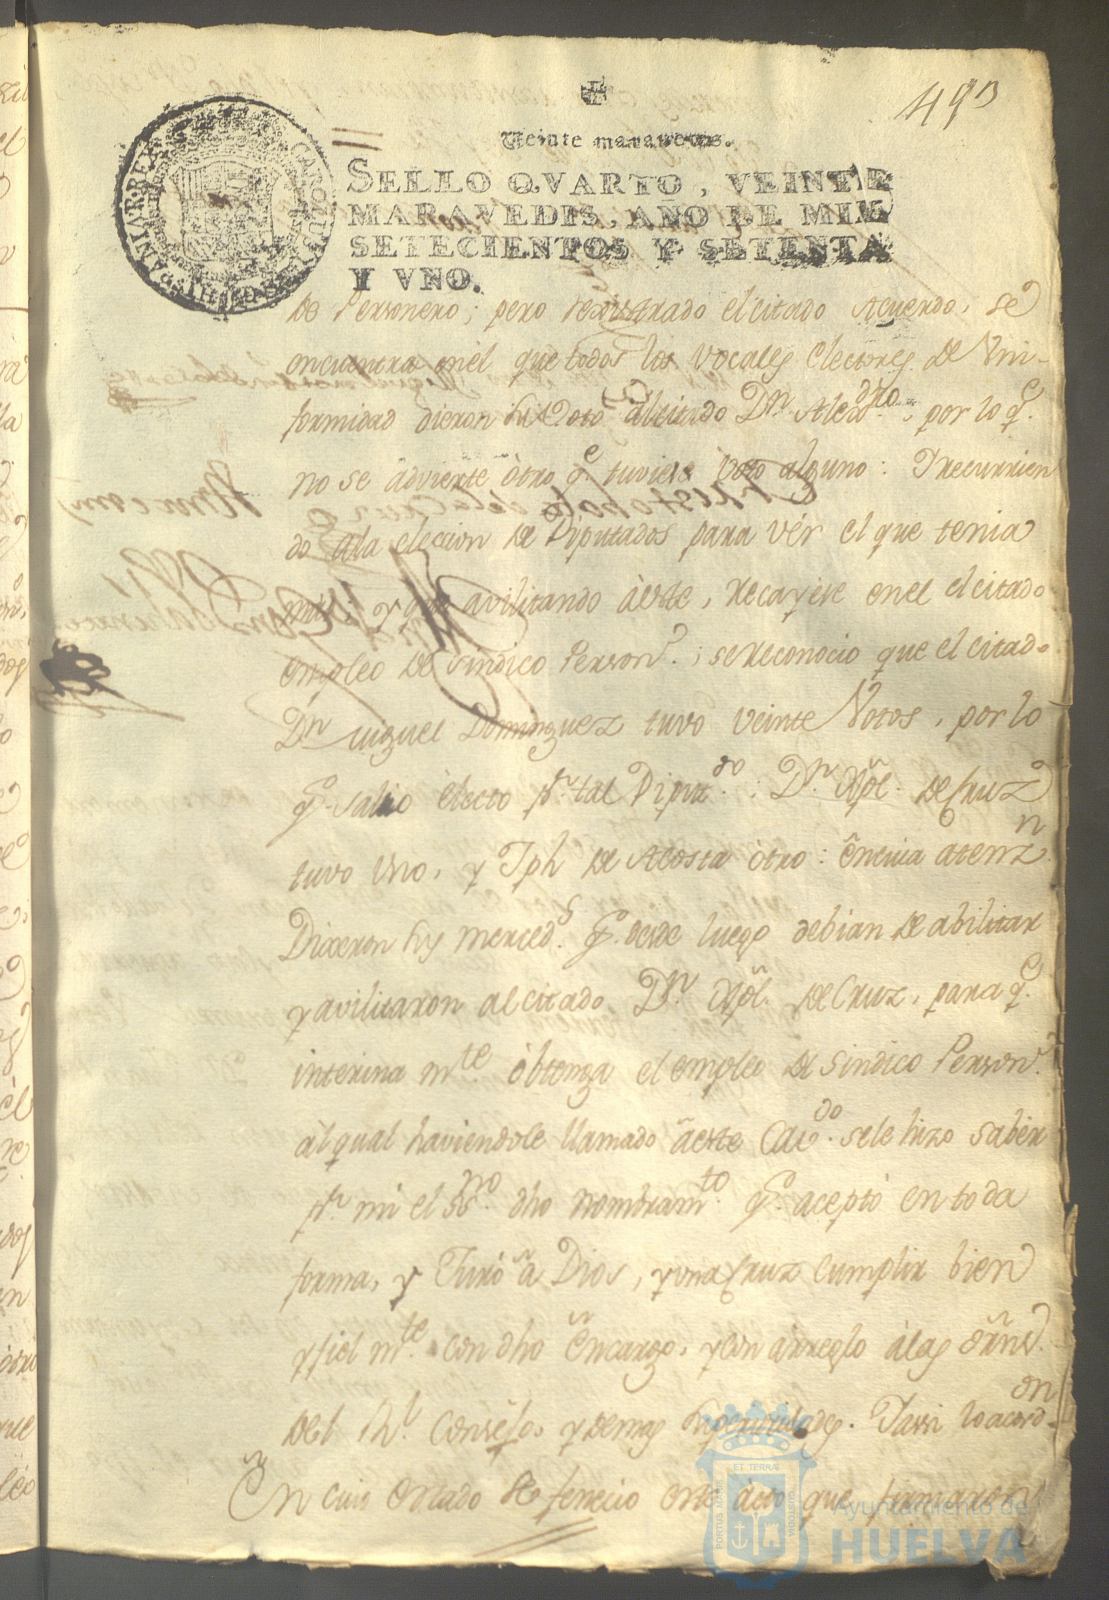 49
Veinte maravedis.
SELLO QVARTO, VEINTE
MARAVEDIS, AÑO DE MIL
SETECIENTOS Y SETENTA
Y VNO.
de Personero; pero rexistrado el citado Acuerdo, se
encuentra en él que todos los Vocales electores de Vni-
formidad dieron su voto al citado Dn. , por lo q.e
no se advierte ótro q.e tuviese voto alguno: Y recurrien
do a la elecion de Diputados para vér el que tenia
mas y que avilitando áeste, recayese en el el citado
empleo de sindico Person.o; se reconocio que el citado
Dn. Miguel Dominguez tuvo veinte Votos, por lo
q.e salio electo p.r tal Diput.do: Dn. Xptl. de Cruz
tuvo Uno, y Jph de Acosta ótro: En cuia atenz.n
Dixeron sus merced.s q.e desde luego debian de abilitar
y avilitaron al citado Dn. Xptl. de Cruz, para q.e
interinam.te óbtenga el empleo de sindico Person.o
al qual haviendole llamado a este Cav.do se le hizo saber
p.r mi el ss.no dho nombram.to q.e aceptó en toda
forma, y Juró a Dios, y una Cruz cumplir bien
y fielm.te con dho Encargo, y con arreglo á las órns.
del R.l Consejo, y demas superioridades. Y assi lo acord.on
En cuio estado se fenecio este ácto que firmaron
ET TERRAE CUSTODIA
PORTUS MARIS
Ayuntamiento de
HUELVA